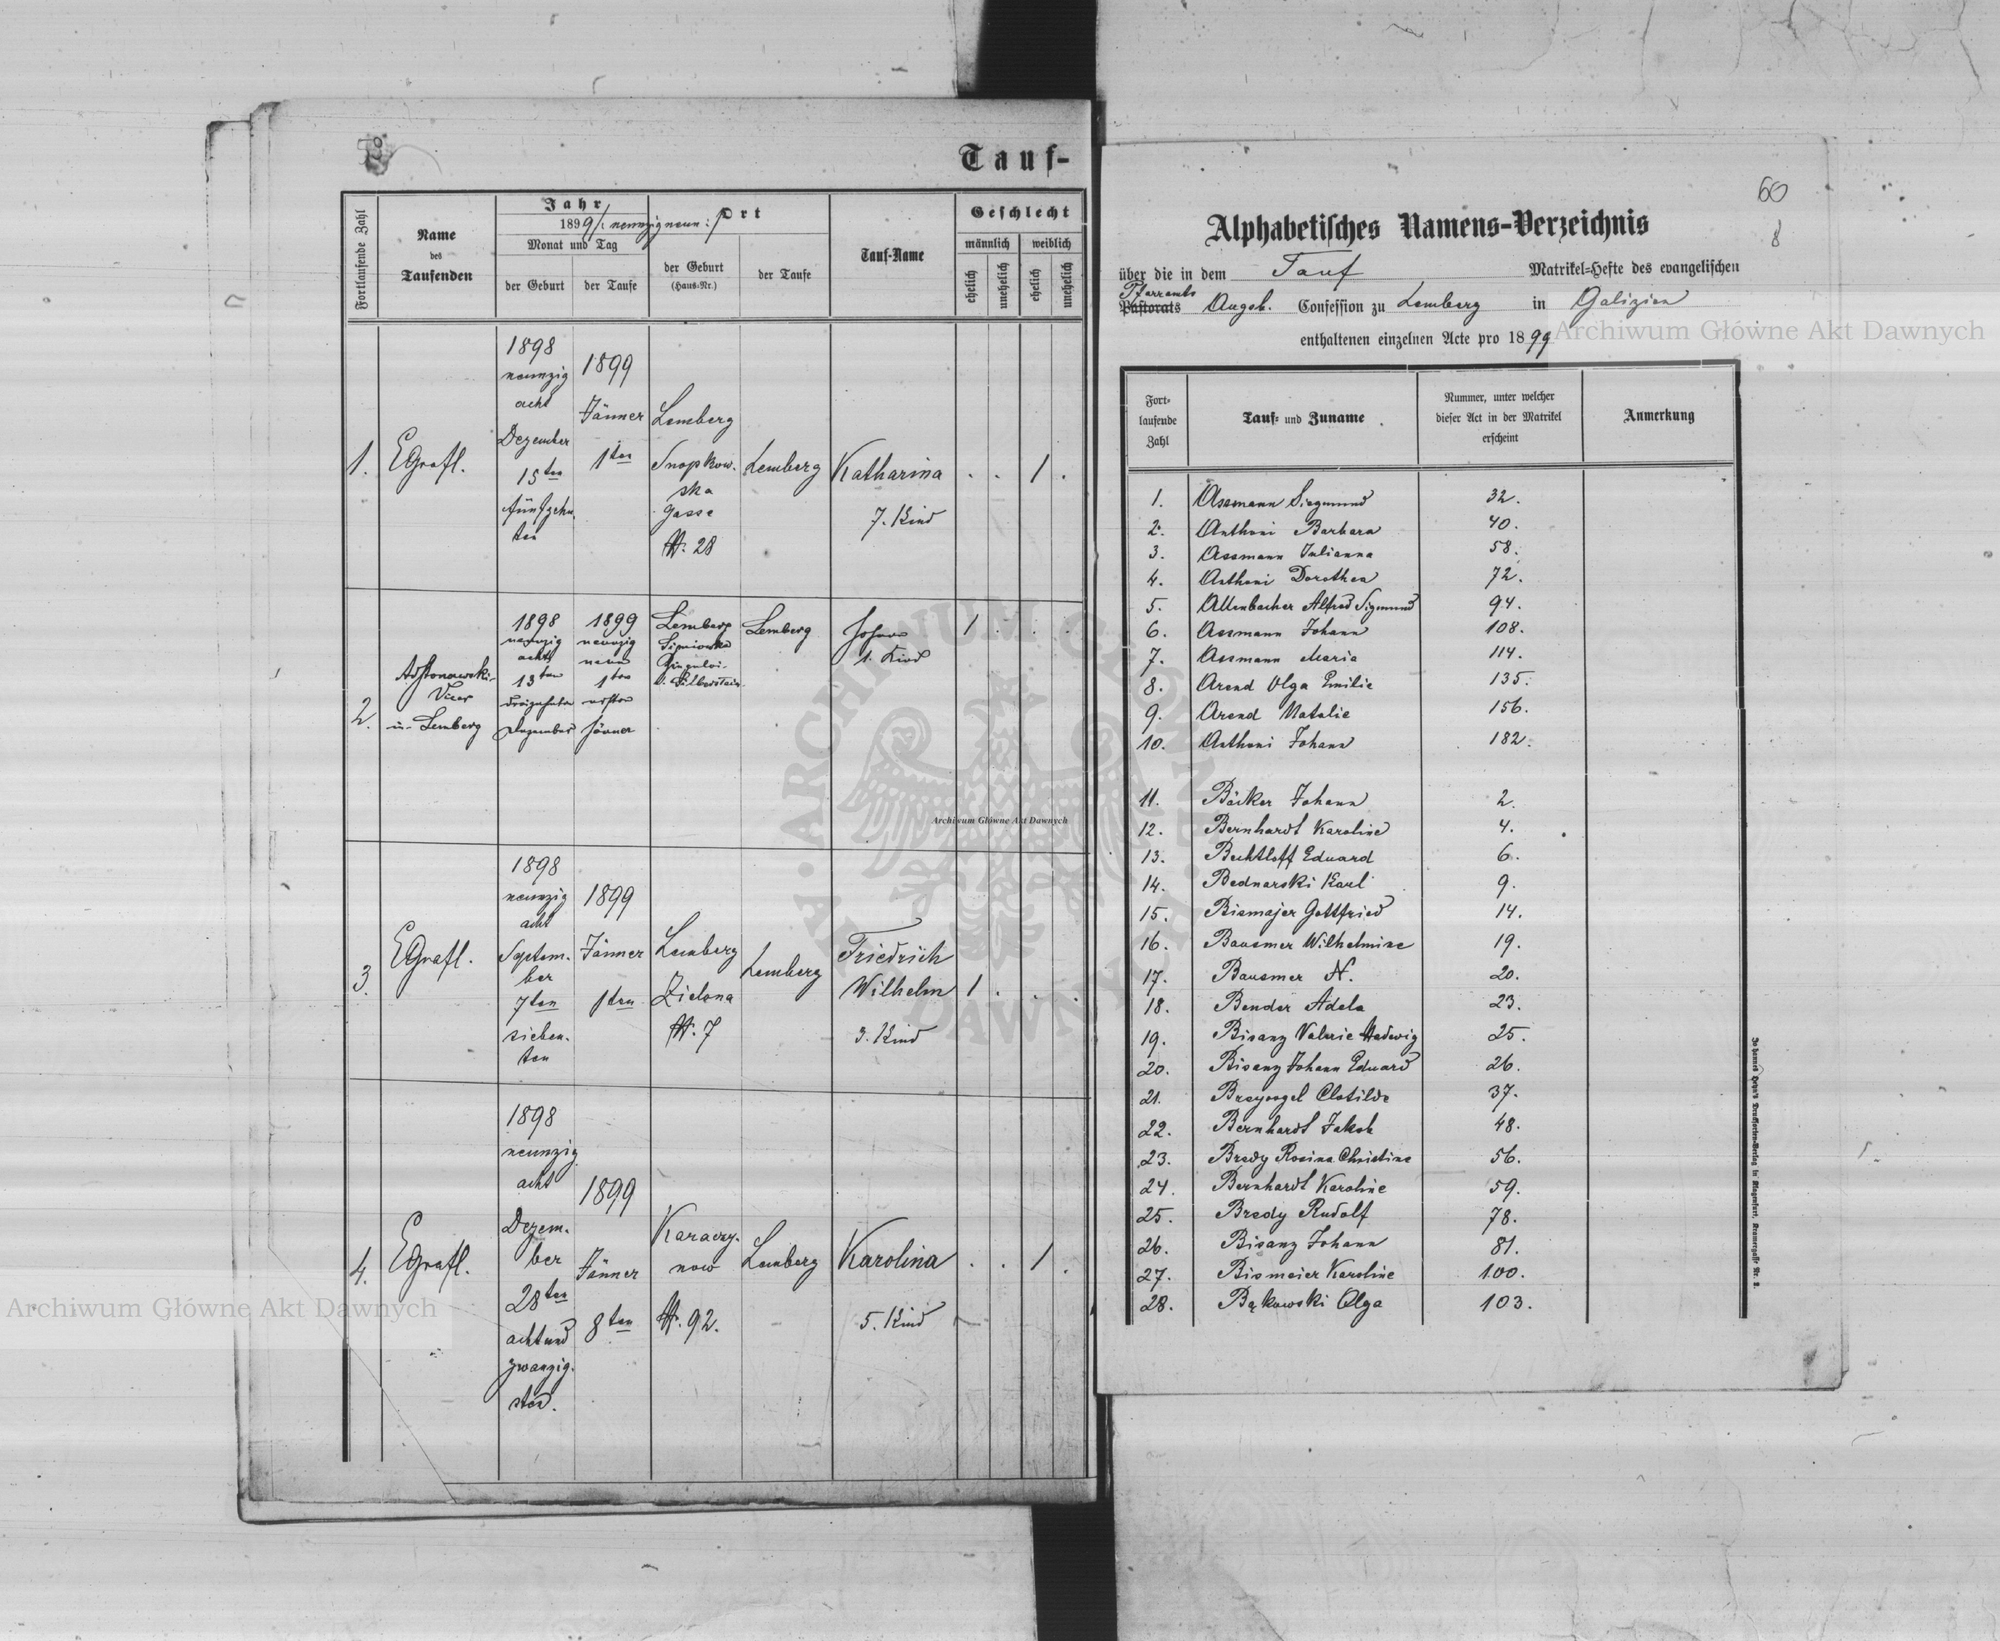 Tauf-
Fortlaufende Zahl
Name
des
Taufenden
Jahr
1899 /: neunzigneun :/
Monat und Tag
der Geburt
der Taufe
Ort
der Geburt
(Haus-Nr.)
der Taufe
Tauf-Name
Geschlecht
männlich
weiblich
ehelich
unehelich
ehelich
unehelich
1.
1898
neunzig
acht
Dezember
15ten
fünfzehn
ten
1899
Jänner
1ten
Lemberg
Snopkow-
ska
Gasse
N. 28
Lemberg
Katharina
7. Kind
. . 1 .
2.
Vicar
in Lemberg
1898
neunzig
acht
13ten
dreizehnten
Dezember
1899
neunzig
neun
1ten
ersten
Jänner
Lemberg
Lemberg
Johann
1. Kind
1 . . .
3.
1898
neunzig
acht
Septem-
ber
7ten
sieben-
ten
1899
Jänner
1ten
Lemberg
Zielona
N. 7
Lemberg
Friedrich
Wilhelm
3. Kind
1 . . .
4.
1898
neunzig
acht
Dezem-
ber
28ten
achtund
zwanzig-
sten.
1899
Jänner
8ten
Karaczy-
now
N. 92.
Lemberg
Karolina
5. Kind
. . 1 .
60
8
Alphabetisches Namens-Verzeichnis
über die in dem Tauf Matrikel-Hefte des evangelischen
Pfarramts
Pastorats Augsb. Confession zu Lemberg in Galizien
enthaltenen einzelnen Acte pro 1899
Fort-
laufende
Zahl
Tauf- und Zuname
Nummer, unter welcher
dieser Act in der Matrikel
erscheint
Anmerkung
1. Assmann Siegmund 32.
2. Anthoni Barbara 40.
3. Assmann Julianna 58.
4. Anthoni Dorothea 72.
5. Allenbacher Alfred Sigmund 94.
6. Assmann Johann 108.
7. Assmann Maria 114.
8. Arend Olga Emilie 135.
9. Arend Natalie 156.
10. Anthoni Johann 182.
11. Bäcker Johann 2.
12. Bernhardt Karoline 4.
13. Bechtloff Eduard 6.
14. Bednarski Karl 9.
15. Bismajer Gottfried 14.
16. Bausmer Wilhelmine 19.
17. Bausmer N. 20.
18. Bender Adela 23.
19. Bisanz Valerie Hedwig 25.
20. Bisanz Johann Eduard 26.
21. Breyvogel Clotilde 37.
22. Bernhardt Jakob 48.
23. Bredy Rosina Christine 56.
24. Bernhardt Karoline 59.
25. Bredy Rudolf 78.
26. Bisanz Johann 81.
27. Bismeier Karoline 100.
28. Bąkowski Olga 103.
Archiwum Główne Akt Dawnych
Archiwum Główne Akt Dawnych
Archiwum Główne Akt Dawnych
ARCHIWUM GŁÓWNE AKT DAWNYCH